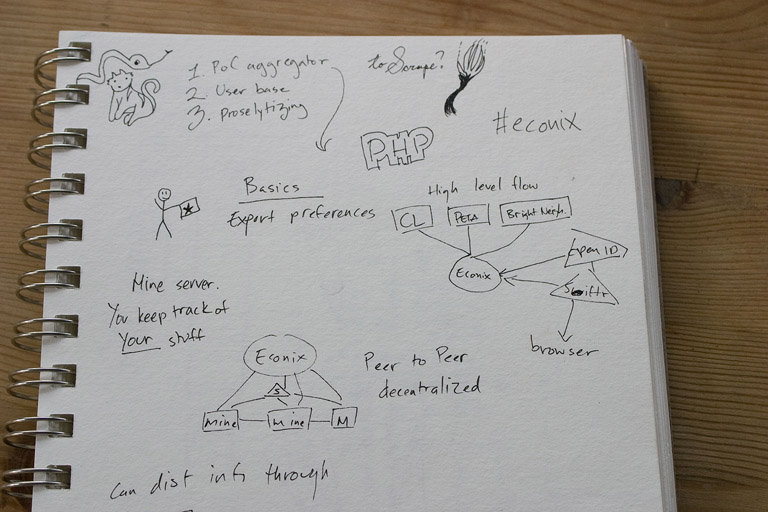 1. PoC aggregator
2. User base
3. Proselytizing
to Scrape?
PHP
#econix
Basics
Export preferences
High level flow
CL
PETA
Bright Neigh.
Econix
Open ID
browser
Mine server.
You keep track of
Your stuff
Econix
S
Mine
Mine
M
Peer to Peer
decentralized
Can dist info through